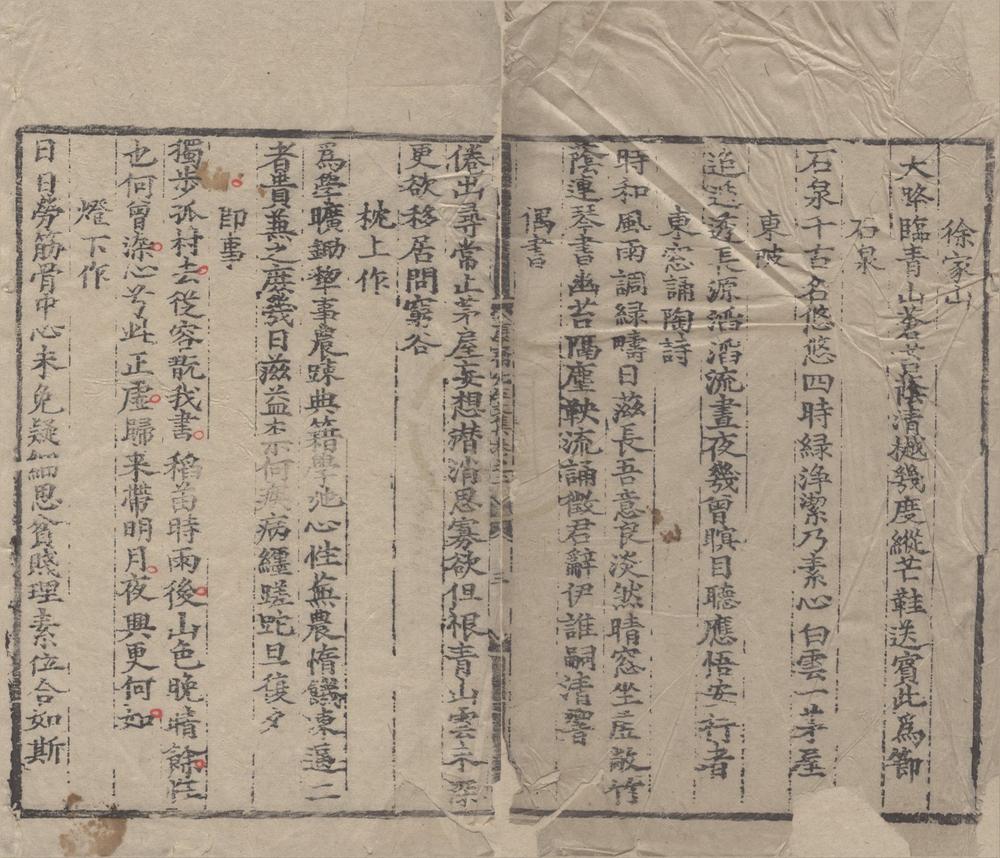 徐家山
大路臨青山蒼苔蔭清樾幾度縱芒鞋送賓此為節
石泉
石泉千古名悠悠四時綠淨潔乃素心白雲一茅屋
東陂
迢迢透長源滔滔流晝夜幾曾瞑目聽應悟安行者
東窓誦陶詩
時和風雨調綠疇日滋長吾意良淡然晴窓坐虛敞竹
蔭連琴書幽苔隔塵鞅流誦徵君辭伊誰嗣清響
偶書
倦出尋常止茅屋妄想潜消思寡欲但恨青山雲未深
更欲移居問窮谷
枕上作
為學曠鋤犂事農踈典籍學弛心性蕪農惰饑凍逼二
者貴兼之庶幾日滋益
何疾病纏蹉跎旦復夕
即事
獨步孤村去從容玩我書稻苗時雨後山色晚晴餘
也何曾染心兮此正虛歸来帶明月夜興更何如
燈下作
日日勞筋骨中心未免疑細思貧賤理素位合如斯